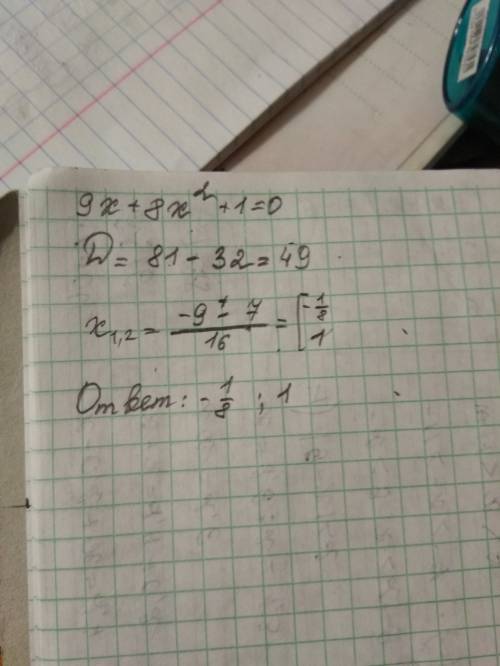 9x + 8x² + 1 = 0
D = 81 - 32 = 49
x₁,₂ = (-9 ± 7)/16 = [-1/8 1
Ответ: -1/8 ; 1